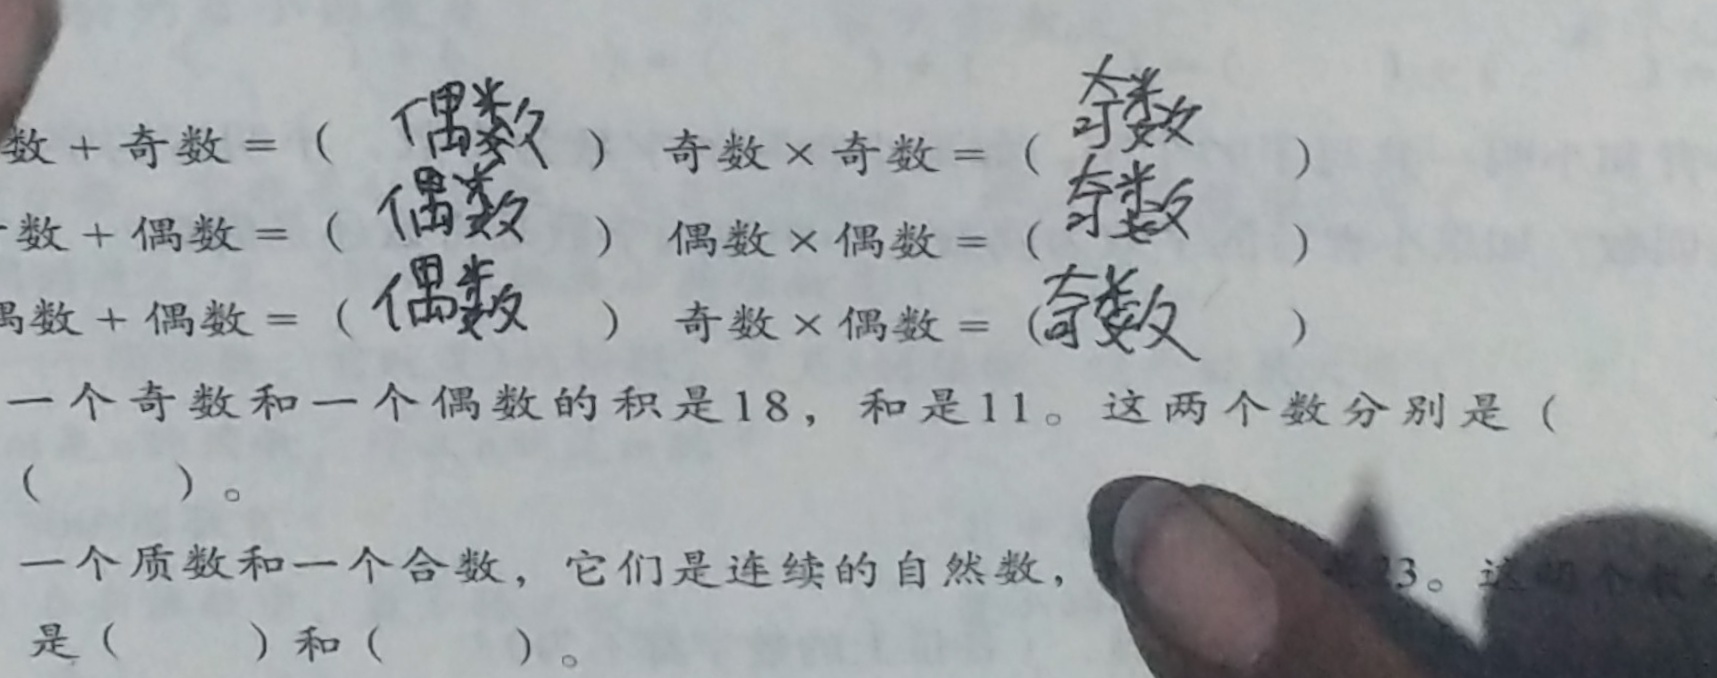 数＋奇数＝（ 偶数 ） 奇数×奇数＝（ 奇数 ）
数＋偶数＝（ 偶数 ） 偶数×偶数＝（ 奇数 ）
偶数＋偶数＝（ 偶数 ） 奇数×偶数＝（ 奇数 ）
一个奇数和一个偶数的积是18，和是11。这两个数分别是（
（ ）。
一个质数和一个合数，它们是连续的自然数， 3。这两个数
是（ ）和（ ）。